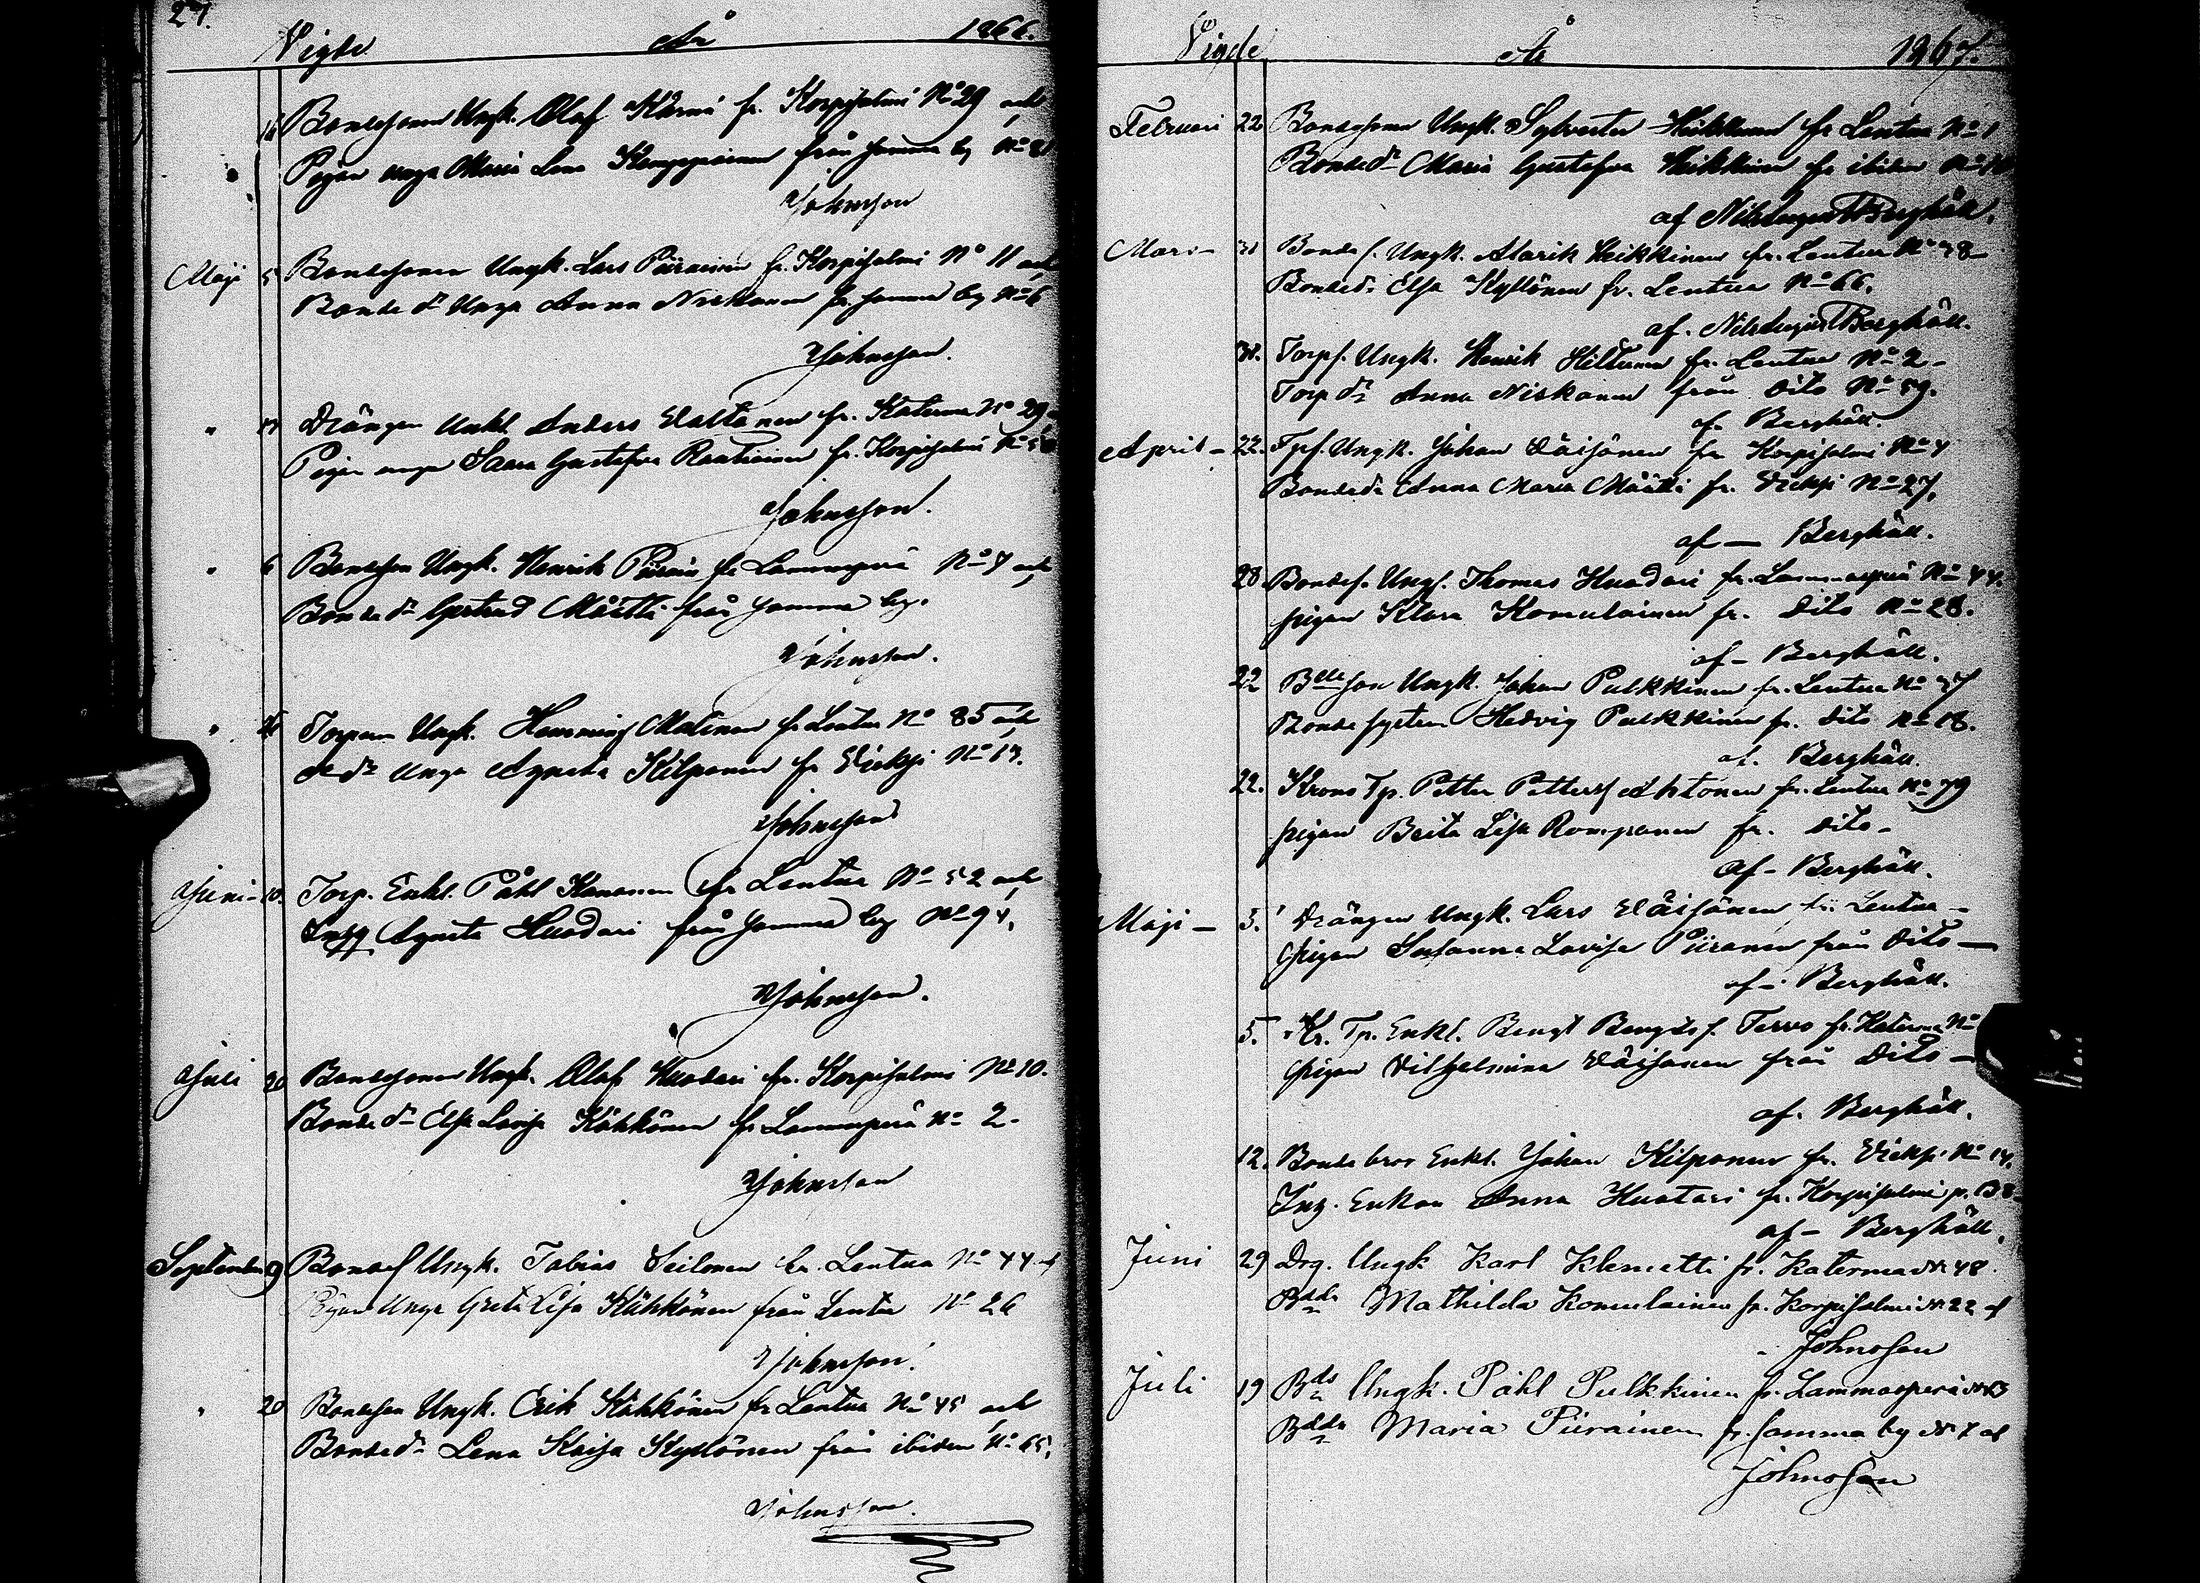 27.
Vigde År 1866.
14 Bondesonen Ungk. Olaf Kärnä fr. Korpisalmi No 29 och
Pigan unga Maria Lena Kemppainen från samma by No
Johnsson
Maji 5 Bondesonen Ungk. Lars Piirainen fr. Korpisalmi No 11 och
Bonde dr Unga Anna Niskanen fr. samma by No 6
Johnsson.
" 17 Drängen Unkl. Anders Waltanen fr. Katerma No 29
Pigan unga Saara Gustafva Rautiainen fr. Korpisalmi No
Johnsson.
" 6 Bondeson Ungk. Henrik Piirain fr Lammasperä No 7 och
Bonde dr Gertrud Määttä från samma by.
Johnsson.
" Ungk. Hemming Matinen fr Lentua No 85 och
dr Unga Agneta Kilponen fr Wieksi No 17.
Johnsson
Juni 10. Torp. Enkl. Påhl Kananen fr Lentua No 52 och
Agneta Huodari från samma by No 94.
Johnsson.
Juli 20 Bondesonen Ungk. Olaf Huodari fr. Korpisalmi No 10.
Bonde dr Elsa Lovisa Kähkönen fr Lammasperä No 2.
Johnsson
September 9 Bondes Ungk. Tobias Seilonen fr. Lentua No 44
Pigan Unga Greta Lisa Kähkönen från Lentua No 26
Johnsson.
" 20 Bondeson Ungk. Erik Kähkönen fr Lentua No 45 och
Bonde dr Lena Kaisa Kyllönen från ibidem No 65,
Johnsson.
Vigde År 1867.
Februari 22 Bondesonen Ungk. Sylvester Heikkinen fr Lentua No 1
Bonde dr Maria Gustafva Heikkinen fr ibidem No
af Nils August Berghäll.
Mars 31 Bonde s. Ungk. Alarik Heikkinen fr. Lentua No 38
Bonde dr Elsa Kyllönen fr. Lentua No 66.
af. Nils August Berghäll.
31. Torp s. Ungk. Henrik Hiltunen fr. Lentua No 2
Torp dr Anna Niskanen från dito No 59.
af Berghäll.
April 22. Tpf. Ungk. Johan Väisänen fr Korpisalmi No 4
Bonde dr Anna Maria Määttä fr. Vieksi No 27,
af Berghäll.
28 Bondes. Ungk. Thomas Huodari fr. Lammasperä No 44.
pigan Klara Komulainen fr. dito No 28.
af Berghäll.
22 Bdeson Ungk. Johan Pulkkinen fr. Lentua No 37
Bonde systern Hedvig Pulkkinen fr. dito No 18.
af. Berghäll
22. Krono Tp. Petter Petters Ahtonen fr. Lentua No 79
pigan Brita Lisa Romppanen fr. dito
Af Berghäll.
Maji 5. Drängen Ungk. Lars Väisänen fr. Lentua
Pigan Susanna Lovisa Piiranen från dito
af Berghäll.
5. Kr. Tp. Enkl. Bengt Bengts s. Tervo fr. Katerma No
Pigan Vilhelmina Väisänen från dito
af. Berghäll.
12. Bonde bror Enkl. Johan Kilponen fr. Vieksi No 14.
Ing. Enkan Anna Huotari fr. Korpisalmi p. 138
af Berghäll.
Juni 29 Drg. Ungk Karl Klemetti fr. Katerma No 48.
Bddr Mathilda Komulainen fr. Korpisalmi No 22 af
Johnsson
Juli 19 Bds Ungk. Påhl Pulkkinen fr. Lammasperä No 13
Bddr Maria Piirainen fr. samma by No 7 af
Johnsson